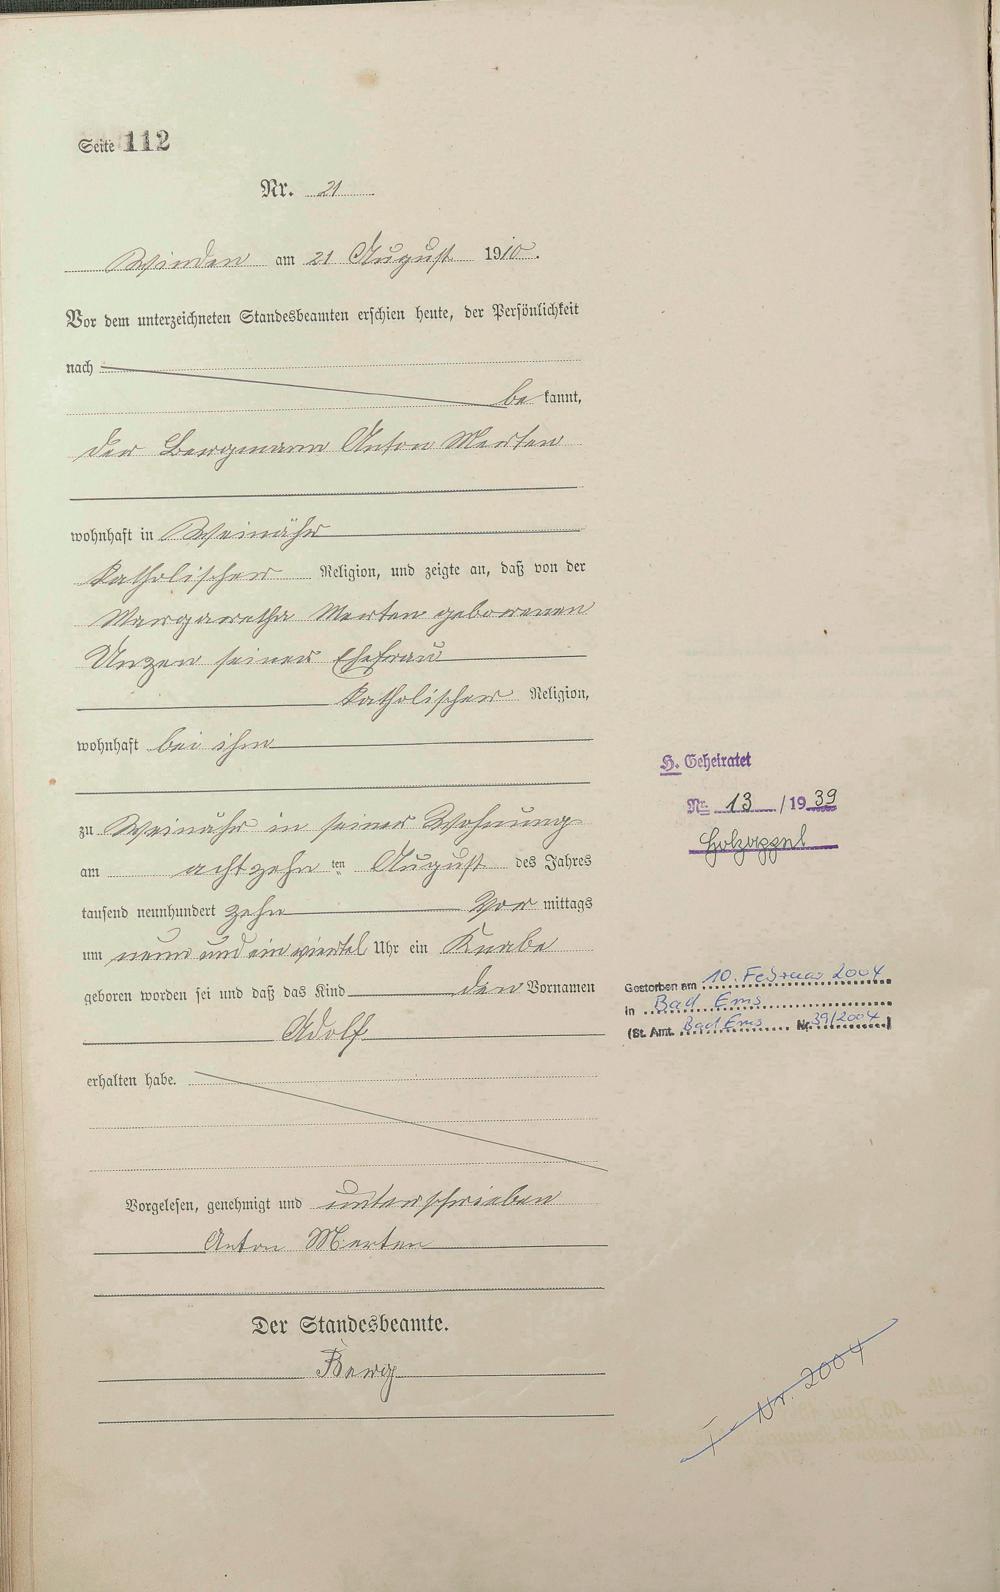 Seite 112
Nr. 21
Winden am 21 August 1910.
Vor dem unterzeichneten Standesbeamten erschien heute, der Persönlichkeit
nach
be kannt,
der Bergmann Anton Merten
wohnhaft in Weinähr
katholischer Religion, und zeigte an, daß von der
Margaretha Merten geborenen
Unzen seiner Ehefrau
katholischer Religion,
wohnhaft bei ihm
zu Weinähr in seiner Wohnung
am achtzehn ten August des Jahres
tausend neunhundert zehn Vor mittags
um neun und ein viertel Uhr ein Knabe
geboren worden sei und daß das Kind den Vornamen
Adolf
erhalten habe.
Vorgelesen, genehmigt und unterschrieben
Anton Merten
Der Standesbeamte.
Berg
H. Geheiratet
Nr. 13 /1939
Holzappel
Gestorben am 10. Februar 2004
in Bad Ems
(St. Amt. Bad Ems Nr. 39/2004)
Nr. 2004